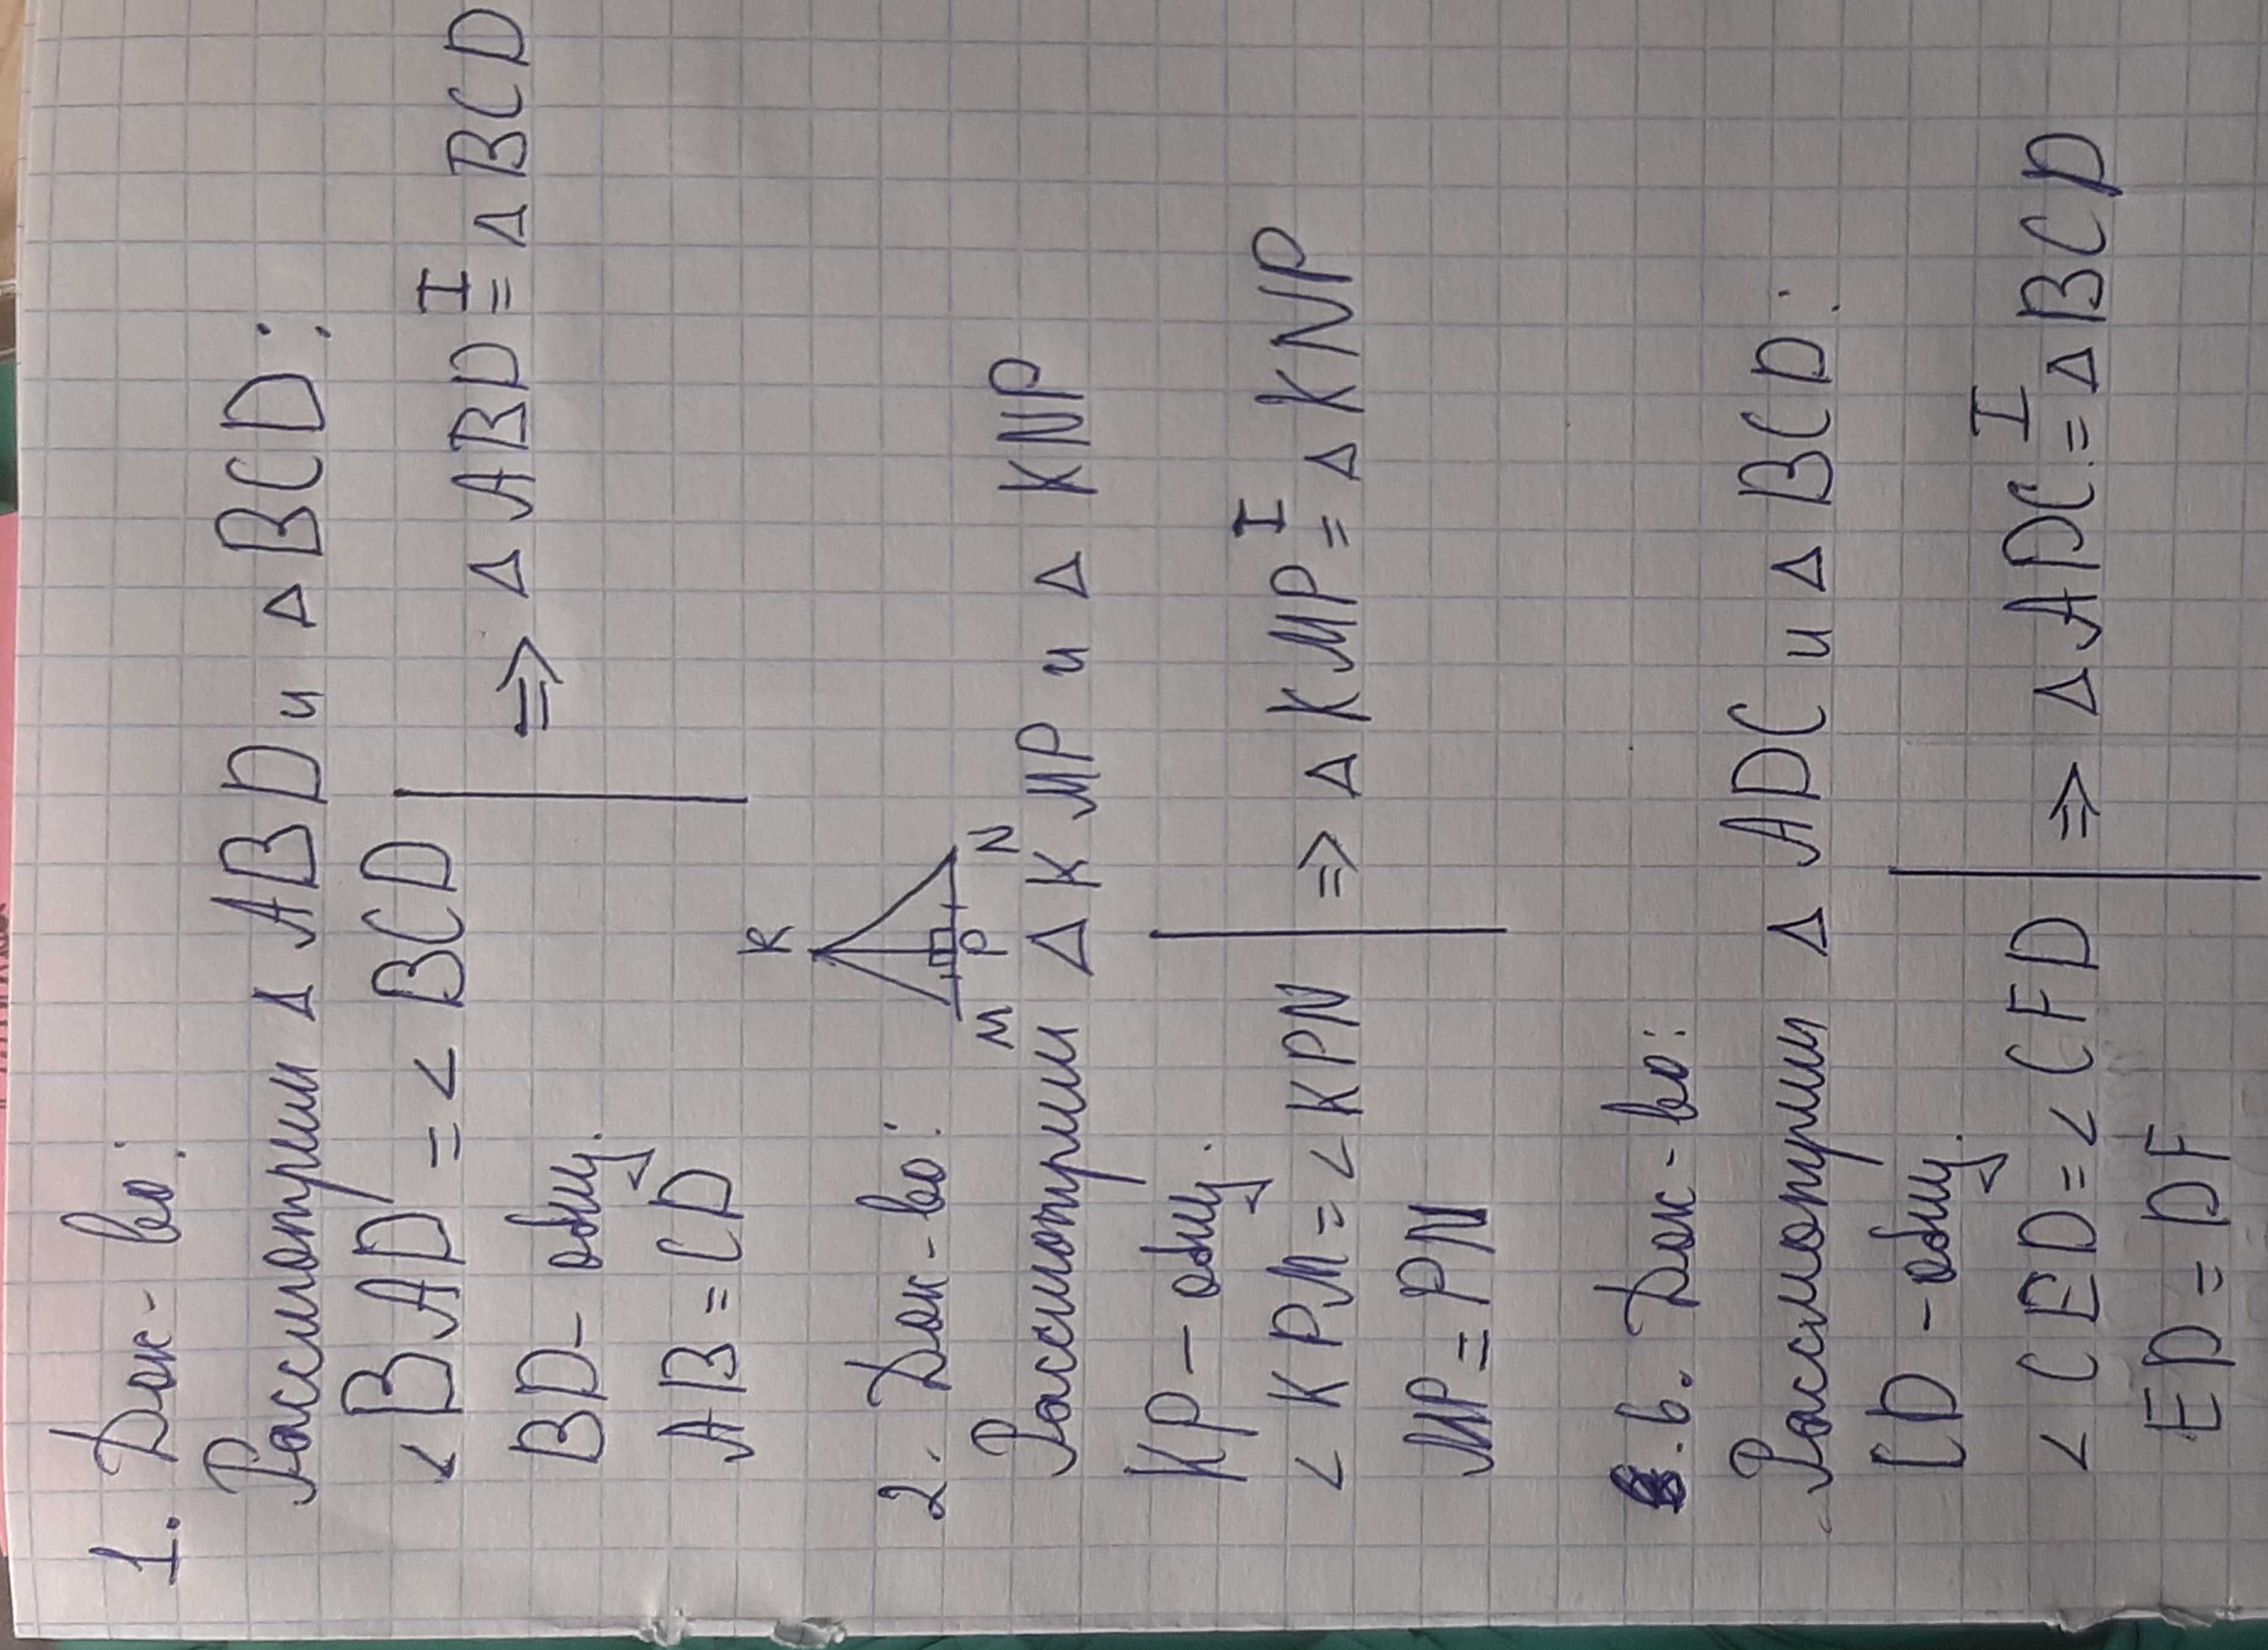 1. Док-во:
Рассмотрим Δ ABD и Δ BCD:
< BAD = < BCD
BD - общ.
AB = CD
=> Δ ABD = Δ BCD
I
K
M P N
2. Док-во:
Рассмотрим Δ KMP и Δ KNP
KP - общ.
< KPM = < KPN
MP = PN
=> Δ KMP = Δ KNP
I
6. Док-во:
Рассмотрим Δ ADC и Δ BCD:
CD - общ.
< CED = < CFD
ED = DF
=> Δ ADC = Δ BCD
I